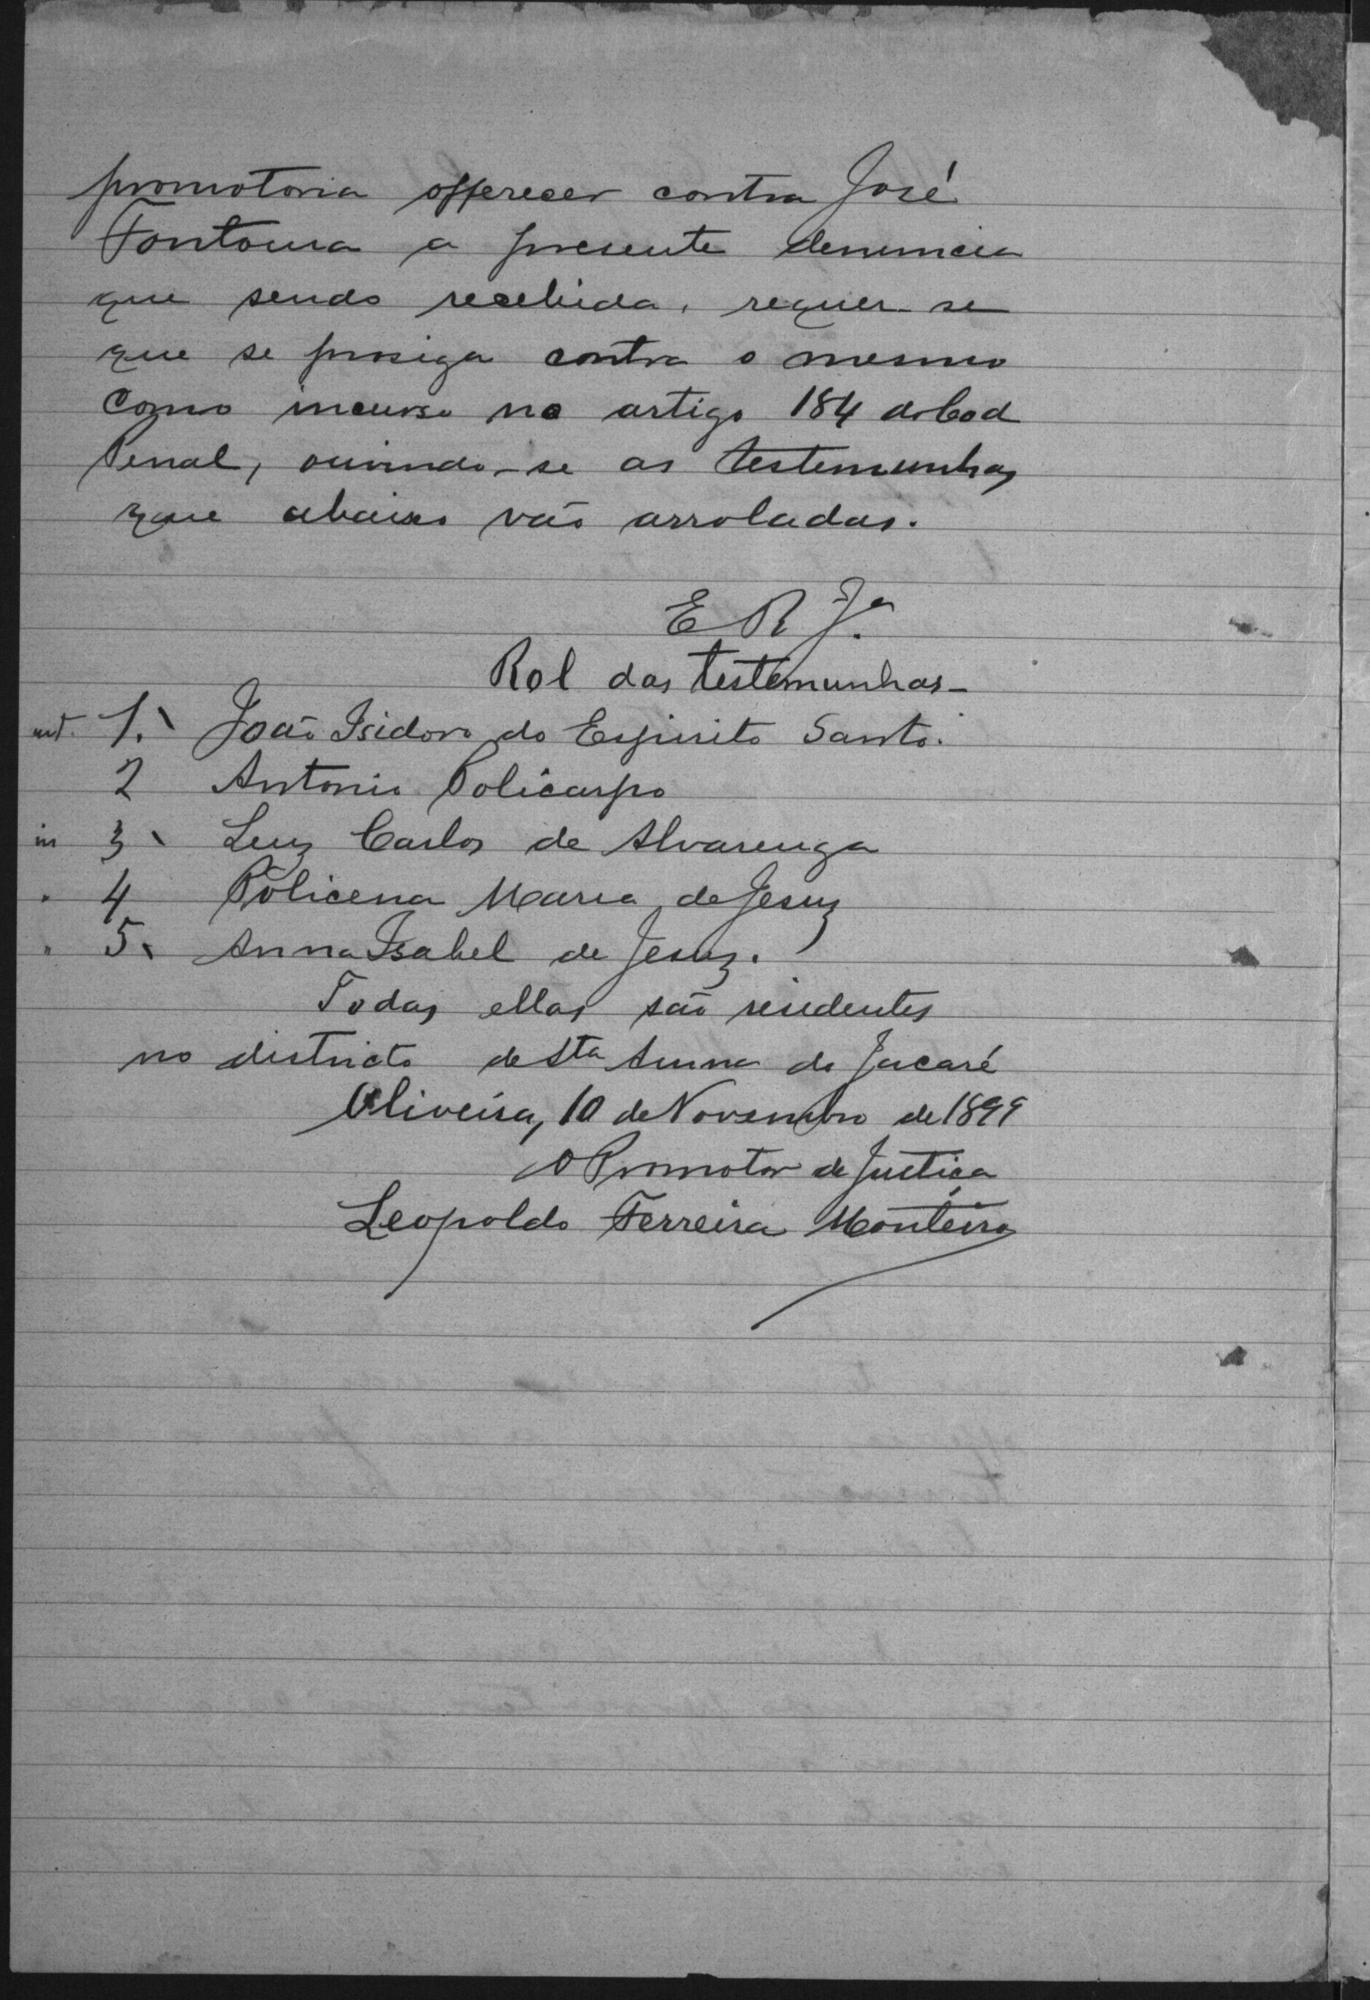 promotoria offerecer contra José
Fontoura a presente denuncia
que sendo recebida, requer-se
que se prosiga contra o mesmo
como incurso no artigo 184 do Cod
Penal, ouvindo-se as testemunhas
que abaixo vão arroladas.
E R J.ª
Rol das testemunhas_
1. João Isidoro do Espirito Santo.
2 Antonio Policarpo
in 3 Luiz Carlos de Alvarenga
" 4 Policena Maria de Jesuz
" 5 Anna Isabel de Jesuz.
Todas ellas são residentes
no districto de Sta Anna do Jacaré
Oliveira, 10 de Novembro de 1899
O Promotor de Justiça
Leopoldo Ferreira Monteiro